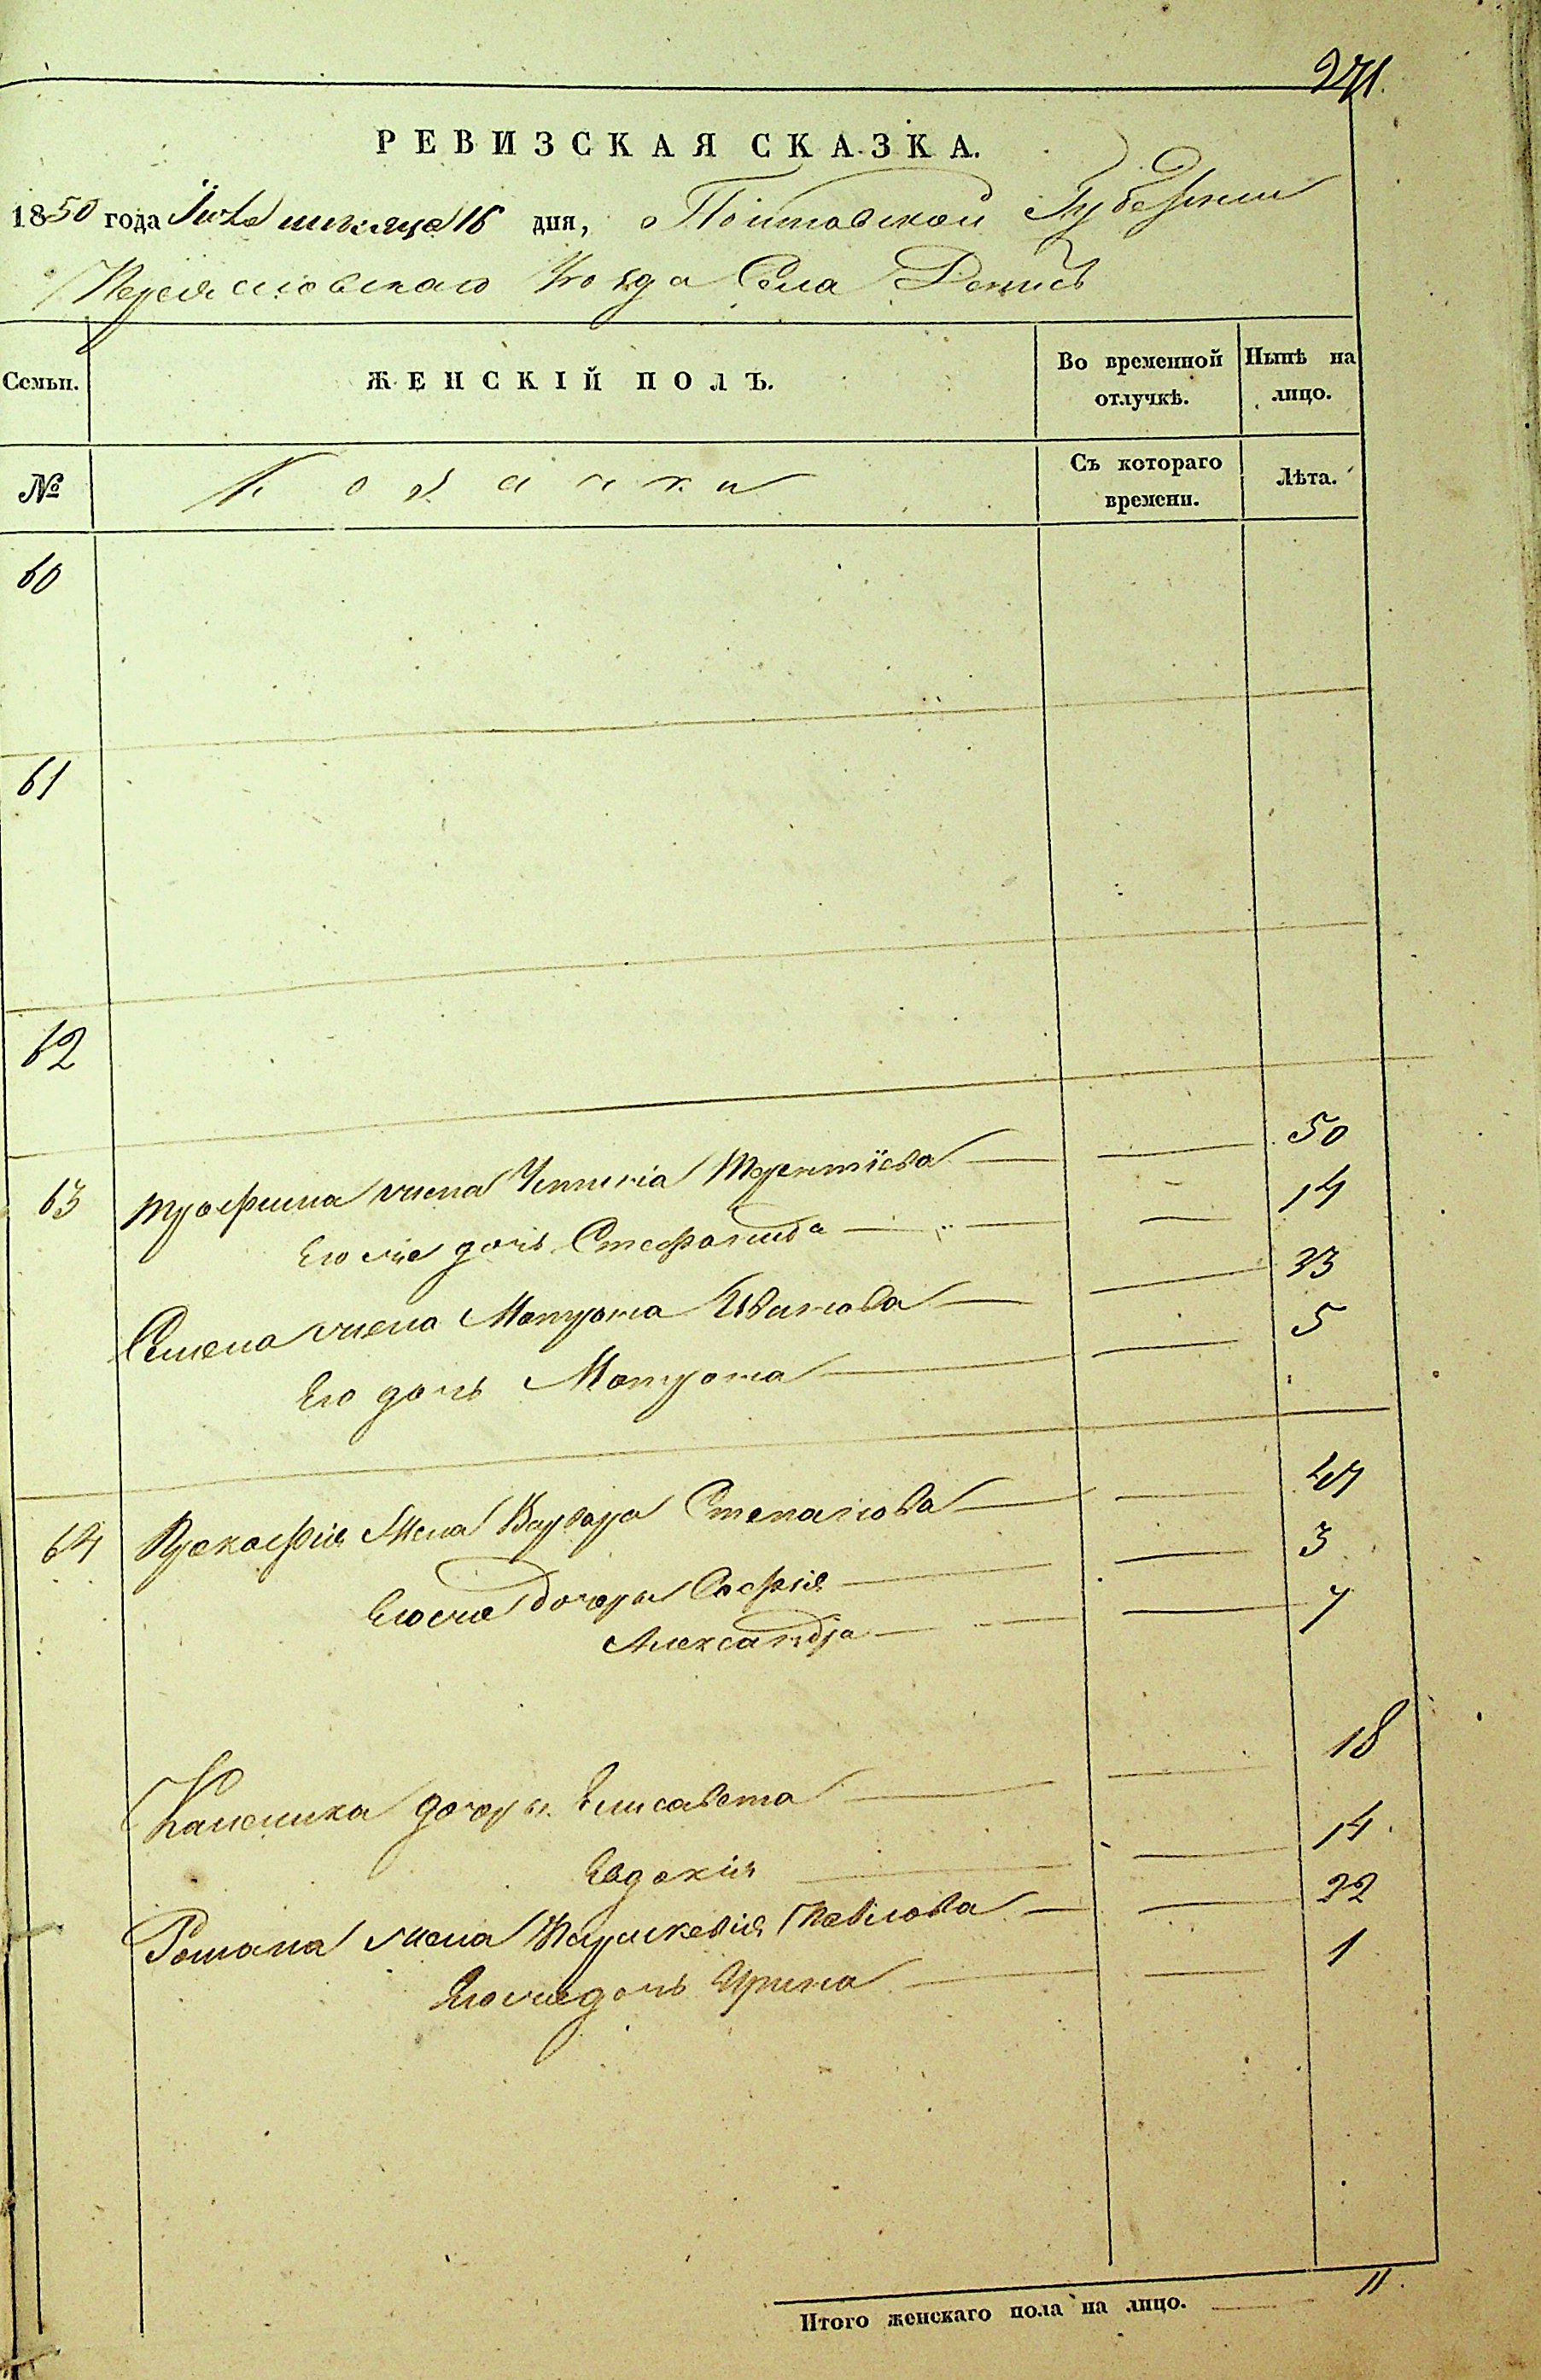 271.
РЕВИЗСКАЯ СКАЗКА.
1850 года Іюля мѣсяца 16 дня, Полтавской Губерніи
Переясловскаго Уѣзда Села Денисъ
Семьи. ЖЕНСКІЙ ПОЛЪ. Во временной отлучкѣ. Нынѣ на лицо.
№ Козачки Съ котораго времени. Лѣта.
60
61
62
63 Трофима жена Терентіева — — 50
Его же дочь Стефанида — — 14
Семена жена Матрона Иванова — — 33
Его дочь Матрона — — 5
64 Прокофія жена Варвара Степанова — — 47
Его же дочери Софія — — 3
Александра — — 7
Каленика дочери Елисавета — — 18
Евдокія — — 14
Романа жена Параскевія Павлова — — 22
Его же дочь Ирина — — 1
Итого женскаго пола на лицо. — 11.